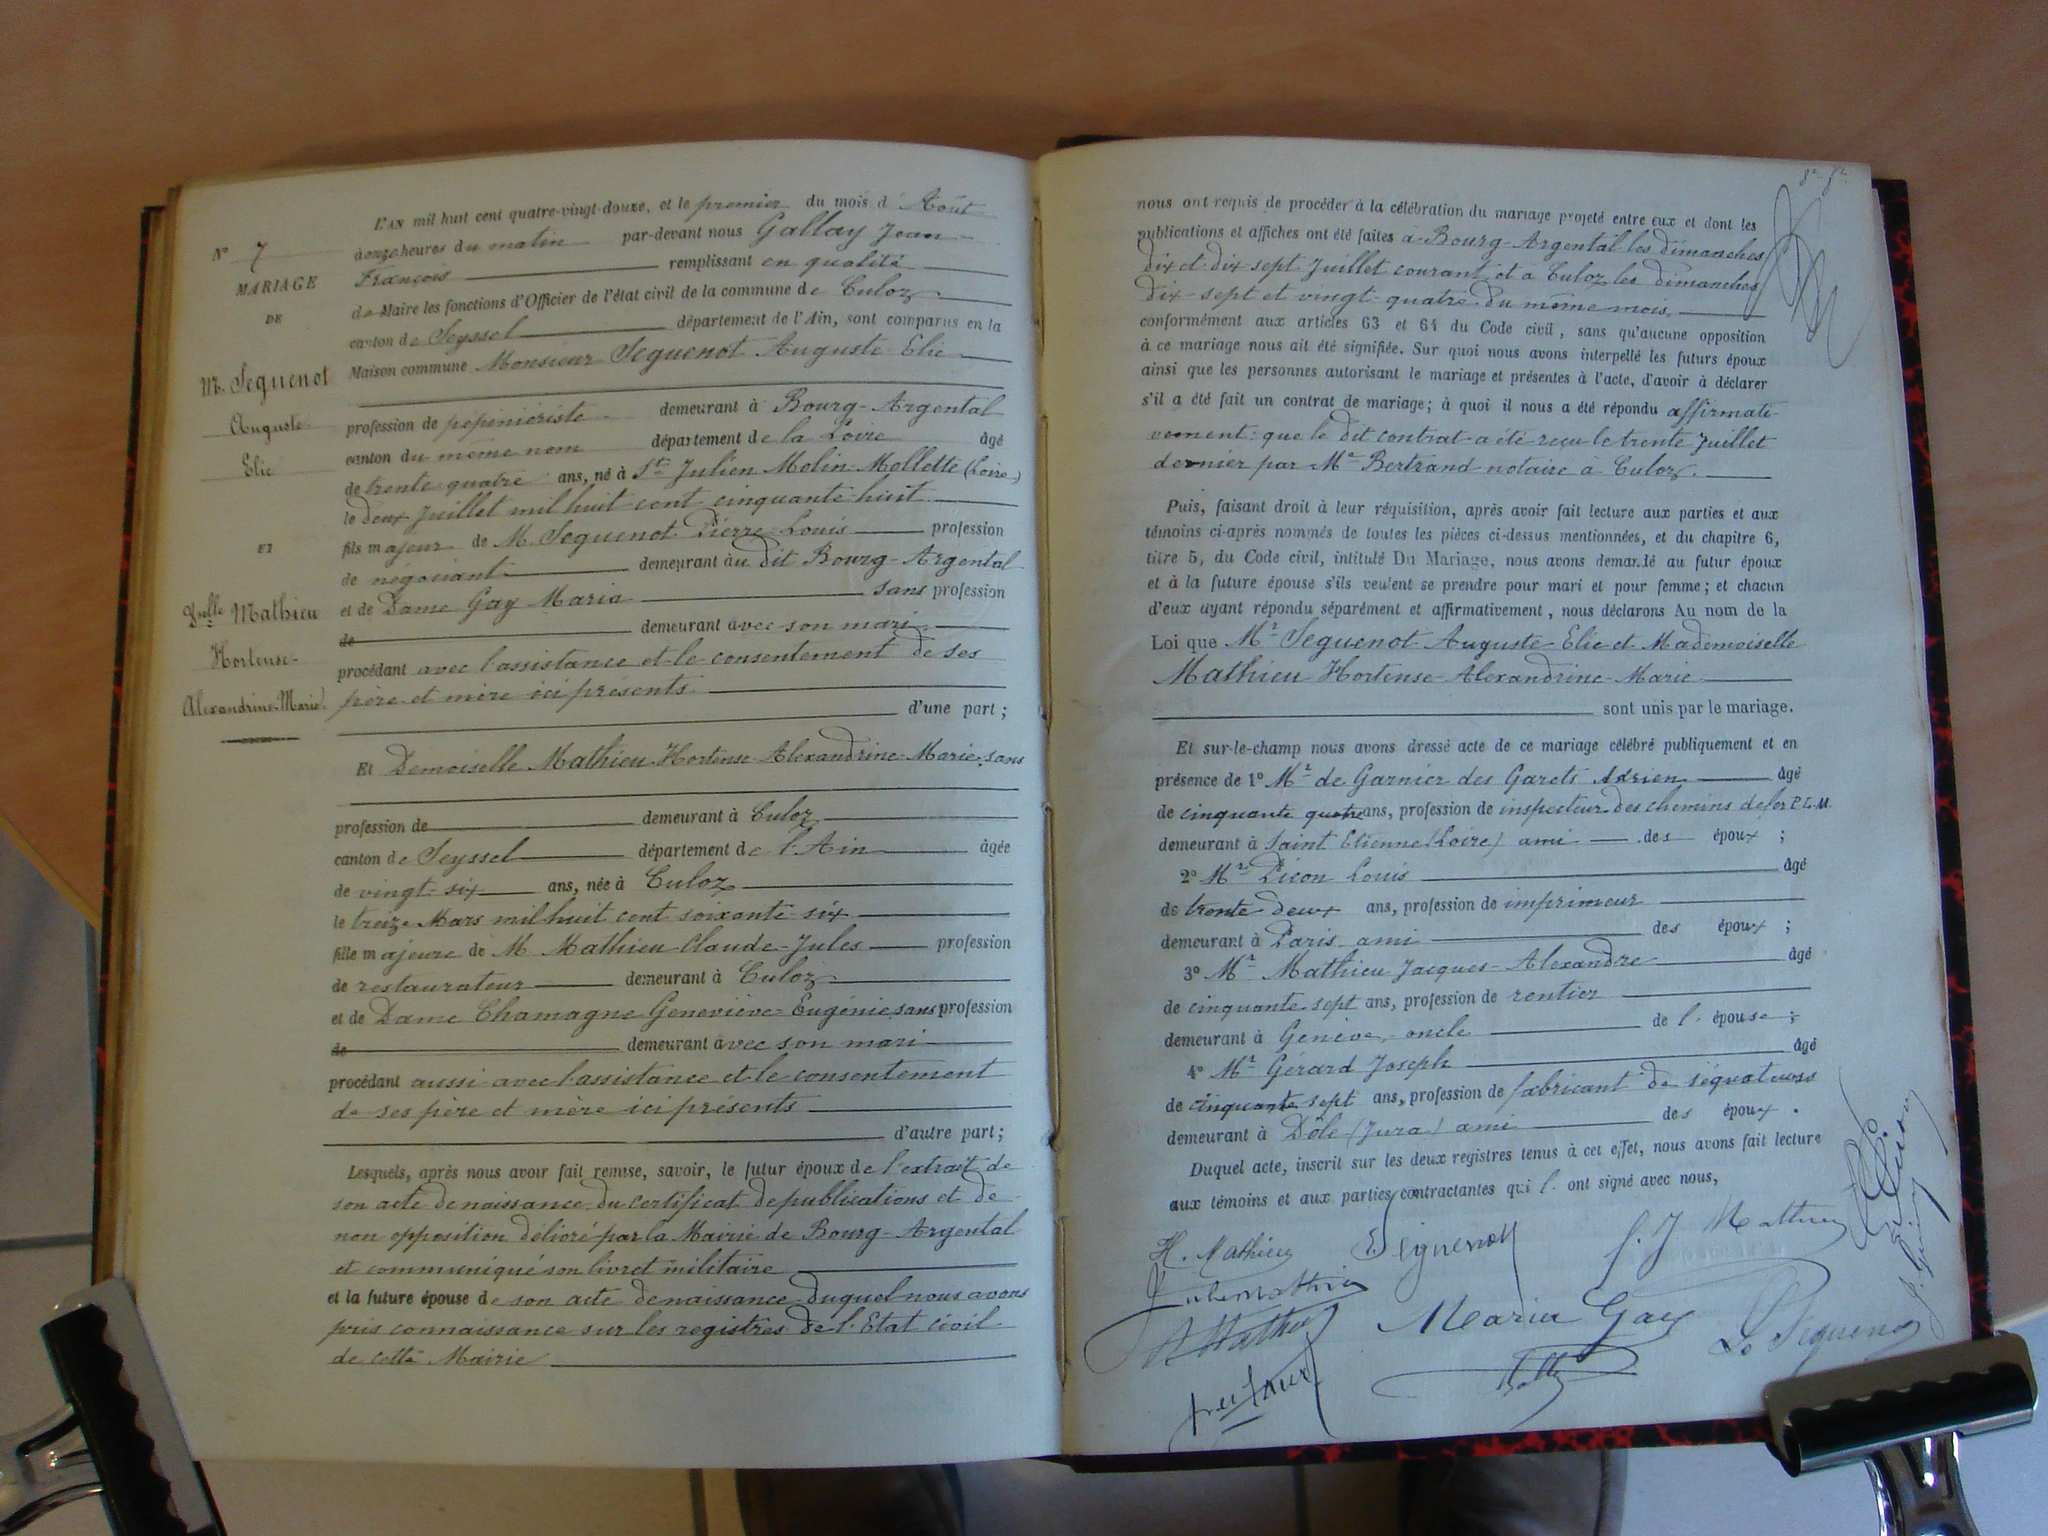 N° 7
MARIAGE
DE
M. Seguenot
Auguste
Elie
ET
Melle Mathieu
Hortense-
Alexandrine-Marie
L'AN mil huit cent quatre-vingt-douze, et le premier du mois d'Août
à onze heures du matin par-devant nous Gallay Jean
François remplissant en qualité
de Maire les fonctions d'Officier de l'état civil de la commune de Culoz
canton de Seyssel département de l'Ain, sont comparus en la
Maison commune Monsieur Seguenot Auguste Elie
profession de pépiniériste demeurant à Bourg-Argental
canton du même nom département de la Loire âgé
de trente quatre ans, né à St Julien Molin-Mollette (Loire)
le deux Juillet mil huit cent cinquante huit
fils majeur de M. Seguenot Pierre-Louis profession
de négociant demeurant au dit Bourg-Argental
et de Dame Gay Maria sans profession
de demeurant avec son mari
procédant avec l'assistance et le consentement de ses
père et mère ici présents.
d'une part;
Et Demoiselle Mathieu Hortense Alexandrine Marie, sans
profession de demeurant à Culoz
canton de Seyssel département de l'Ain âgée
de vingt-six ans, née à Culoz
le treize Mars mil huit cent soixante six
fille majeure de M Mathieu Claude-Jules profession
de restaurateur demeurant à Culoz
et de Dame Chamagne Geneviève-Eugénie, sans profession
de demeurant avec son mari
procédant aussi avec l'assistance et le consentement
de ses père et mère ici présents
d'autre part;
Lesquels, après nous avoir fait remise, savoir, le futur époux de l'extrait de
son acte de naissance du certificat de publications et de
non opposition délivré par la Mairie de Bourg-Argental
et communiqué son livret militaire
et la future épouse de son acte de naissance duquel nous avons
pris connaissance sur les registres de l'Etat civil
de cette Mairie
nous ont requis de procéder à la célébration du mariage projeté entre eux et dont les
publications et affiches ont été faites à Bourg-Argental les dimanches
dix et dix sept Juillet courant et à Culoz les dimanches
dix-sept et vingt-quatre du même mois,
conformément aux articles 63 et 64 du Code civil, sans qu'aucune opposition
à ce mariage nous ait été signifiée. Sur quoi nous avons interpellé les futurs époux
ainsi que les personnes autorisant le mariage et présentes à l'acte, d'avoir à déclarer
s'il a été fait un contrat de mariage; à quoi il nous a été répondu affirmati-
vement: que le dit contrat a été reçu le trente Juillet
dernier par Me Bertrand notaire à Culoz.
Puis, faisant droit à leur réquisition, après avoir fait lecture aux parties et aux
témoins ci-après nommés de toutes les pièces ci-dessus mentionnées, et du chapitre 6,
titre 5, du Code civil, intitulé Du Mariage, nous avons demandé au futur époux
et à la future épouse s'ils veulent se prendre pour mari et pour femme; et chacun
d'eux ayant répondu séparément et affirmativement, nous déclarons Au nom de la
Loi que Mr Seguenot-Auguste-Elie et Mademoiselle
Mathieu-Hortense-Alexandrine-Marie
sont unis par le mariage.
Et sur-le-champ nous avons dressé acte de ce mariage célébré publiquement et en
présence de 1° Mr de Garnier des Garets Adrien âgé
de cinquante quatre ans, profession de inspecteur des chemins de fer P.L.M.
demeurant à Saint Etienne (Loire) ami des époux;
2° Mr Picon Louis âgé
de trente deux ans, profession de imprimeur
demeurant à Paris, ami des époux;
3° Mr Mathieu Jacques-Alexandre âgé
de cinquante sept ans, profession de rentier
demeurant à Genève, oncle de l'épouse;
4° Mr Gérard Joseph âgé
de cinquante sept ans, profession de fabricant de
demeurant à Dôle (Jura) ami des époux.
Duquel acte, inscrit sur les deux registres tenus à cet effet, nous avons fait lecture
aux témoins et aux parties contractantes qui l'ont signé avec nous,
H. Mathieu E Seguenot Mathieu
Mathieu
Maria Gay Seguenot